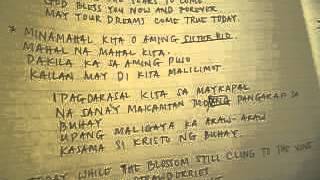 GOD BLESS YOU NOW AND FOREVER
MAY YOUR DREAMS COME TRUE TODAY.
* MINAMAHAL KITA O AMING SISTER KO
MAHAL NA MAHAL KITA.
DAKILA KA SA AMING PUSO
KAILAN MAY DI KITA MALILIMOT
IPAGDARASAL KITA SA MAYKAPAL
NA SANAY MAKAMTAN PANGARAP SA
BUHAY
UPANG MALIGAYA KA ARAW-ARAW
KASAMA SI KRISTO NG BUHAY.
TODAY WHILE THE BLOSSOM STILL CLING TO THE VINE
STRAWBERRIES